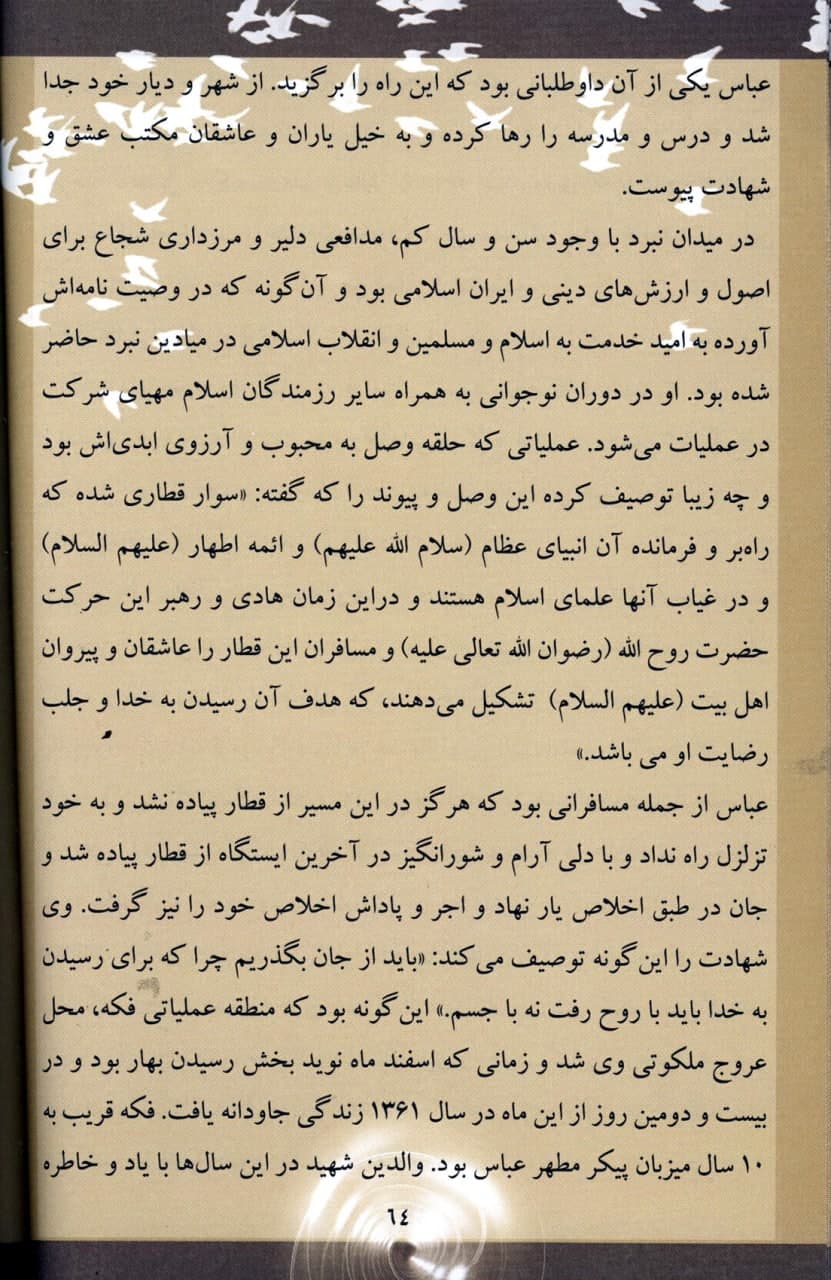 عباس یکی از آن داوطلبانی بود که این راه را برگزید. از شهر و دیار خود جدا
شد و درس و مدرسه را رها کرده و به خیل یاران و عاشقان مکتب عشق و
شهادت پیوست.
در میدان نبرد با وجود سن و سال کم، مدافعی دلیر و مرزداری شجاع برای
اصول و ارزش‌های دینی و ایران اسلامی بود و آن‌گونه که در وصیت نامه‌اش
آورده به امید خدمت به اسلام و مسلمین و انقلاب اسلامی در میادین نبرد حاضر
شده بود. او در دوران نوجوانی به همراه سایر رزمندگان اسلام مهیای شرکت
در عملیات می‌شود. عملیاتی که حلقه وصل به محبوب و آرزوی ابدی‌اش بود
و چه زیبا توصیف کرده این وصل و پیوند را که گفته: «سوار قطاری شده که
راه‌بر و فرمانده آن انبیای عظام (سلام الله علیهم) و ائمه اطهار (علیهم السلام)
و در غیاب آنها علمای اسلام هستند و دراین زمان هادی و رهبر این حرکت
حضرت روح الله (رضوان الله تعالی علیه) و مسافران این قطار را عاشقان و پیروان
اهل بیت (علیهم السلام) تشکیل می‌دهند، که هدف آن رسیدن به خدا و جلب
رضایت او می باشد.»
عباس از جمله مسافرانی بود که هرگز در این مسیر از قطار پیاده نشد و به خود
تزلزل راه نداد و با دلی آرام و شورانگیز در آخرین ایستگاه از قطار پیاده شد و
جان در طبق اخلاص یار نهاد و اجر و پاداش اخلاص خود را نیز گرفت. وی
شهادت را این‌گونه توصیف می‌کند: «باید از جان بگذریم چرا که برای رسیدن
به خدا باید با روح رفت نه با جسم.» این‌گونه بود که منطقه عملیاتی فکه، محل
عروج ملکوتی وی شد و زمانی که اسفند ماه نوید بخش رسیدن بهار بود و در
بیست و دومین روز از این ماه در سال ۱۳۶۱ زندگی جاودانه یافت. فکه قریب به
۱۰ سال میزبان پیکر مطهر عباس بود. والدین شهید در این سال‌ها با یاد و خاطره
٦٤